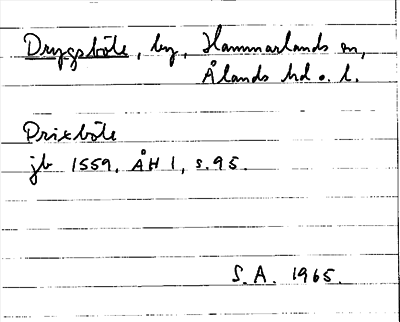 Drygsböle, by, Hammarlands sn,
Ålands hd o. l.
Prixböle
jb 1559, ÅH 1, s. 95.
S. A. 1965.